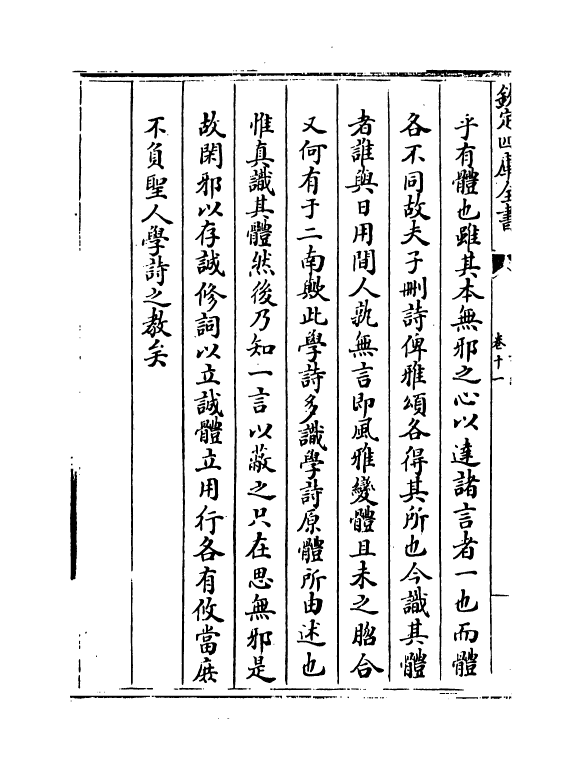 欽定四庫全書
卷十一
乎有體也雖其本無邪之心以達諸言者一也而體
各不同故夫子刪詩俾雅頌各得其所也今識其體
者誰與日用間人孰無言即風雅變體且未之脗合
又何有于二南歟此學詩多識學詩原體所由述也
惟真識其體然後乃知一言以蔽之只在思無邪是
故閑邪以存誠修詞以立誠體立用行各有攸當庶
不負聖人學詩之教矣